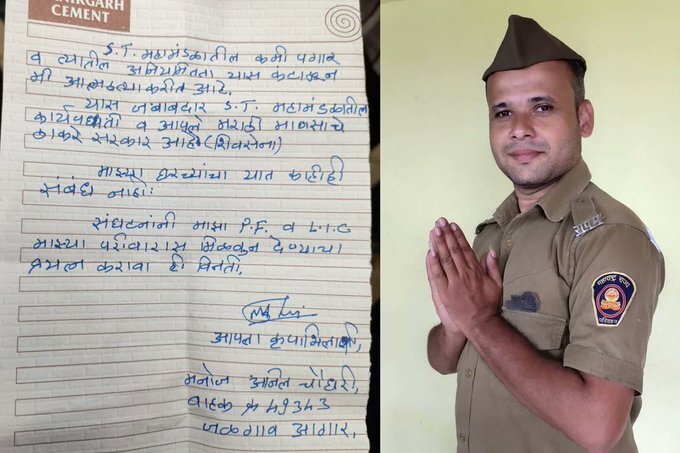 NIRGARH
CEMENT
S.T. महामंडळातील कमी पगार
व त्यातील अनियमितता यास कंटाळून
मी आत्महत्या करीत आहे.
यास जबाबदार S.T. महामंडळातील
कार्यपध्दती व आपले मराठी माणसाचे
ठाकरे सरकार आहे (शिवसेना)
माझ्या घरच्यांचा यात काहीही
संबंध नाही:
संघटनांनी माझा P.F. व L.I.C
माझ्या परीवारास मिळवुन देण्याचा
प्रयत्न करावा ही विनंती.
आपला कृपाभिलाषी,
मनोज अनिल चौधरी,
वाहक क्र 49343
जळगाव आगार,
रापम
महाराष्ट्र राज्य
परिवहन